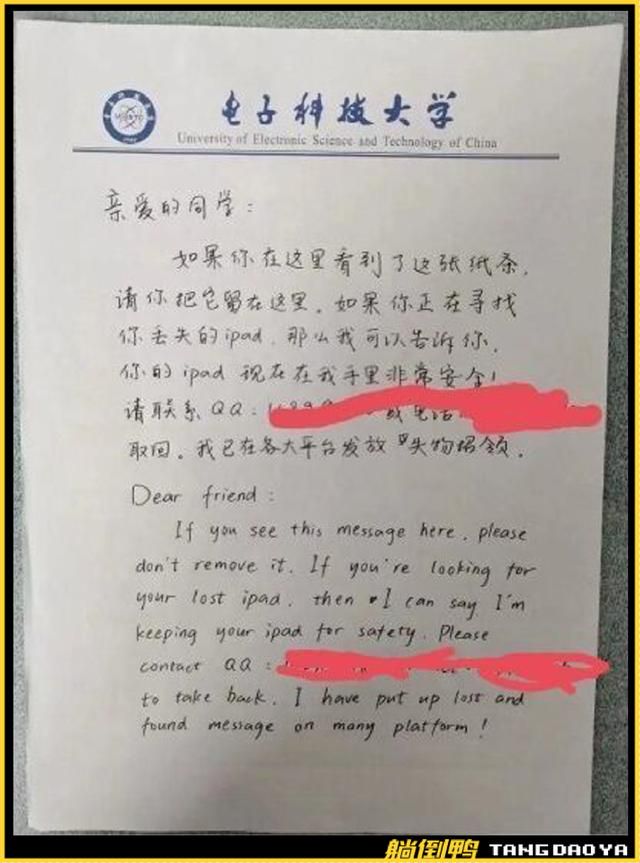 电子科技大学
University of Electronic Science and Technology of China
亲爱的同学：
如果你在这里看到了这张纸条，
请你把它留在这里。如果你正在寻找
你丢失的ipad，那么我可以告诉你，
你的ipad 现在在我手里非常安全！
请联系QQ：
取回。我已在各大平台发放失物招领。
Dear friend:
If you see this message here, please
don't remove it. If you're looking for
your lost ipad, then I can say I'm
keeping your ipad for safety. Please
contact QQ:
to take back. I have put up lost and
found message on many platform!
躺倒鸭 TANG DAO YA